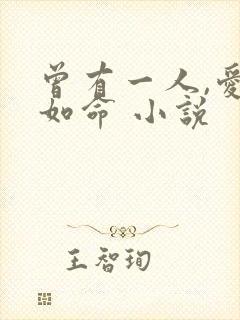 曾有一人,愛
如命 小說
王智珣